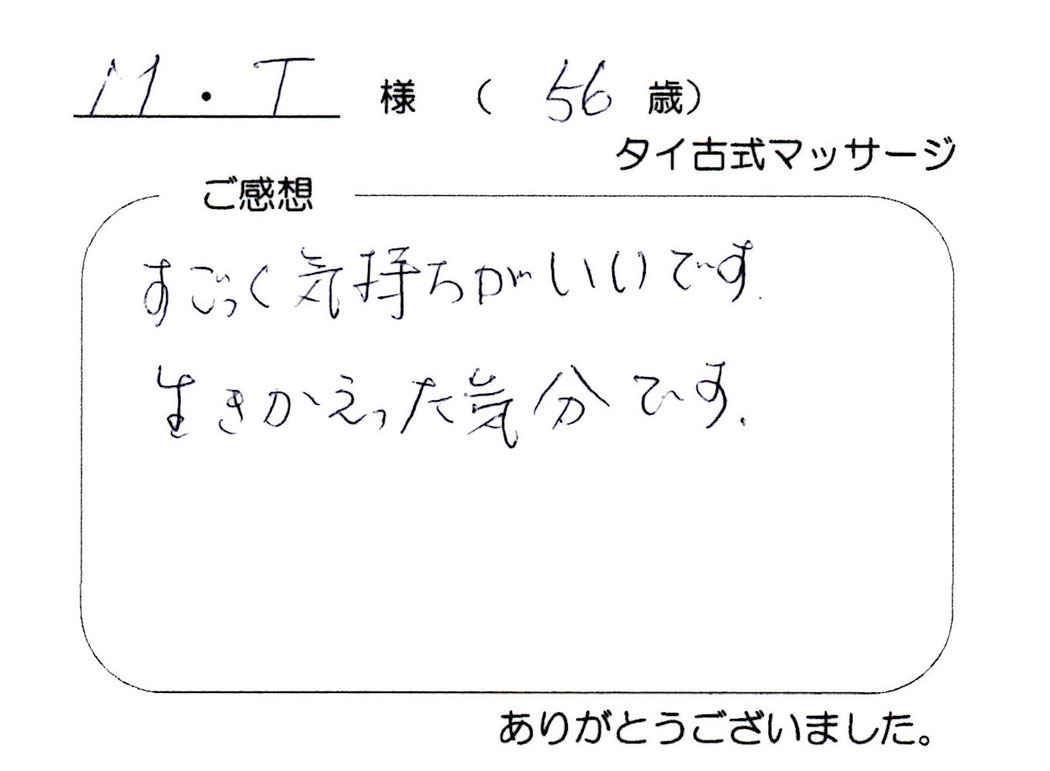 M・T 様 ( 56 歳)
タイ古式マッサージ
ご感想
すごっく気持ちがいいです.
生きかえった気分です.
ありがとうございました。